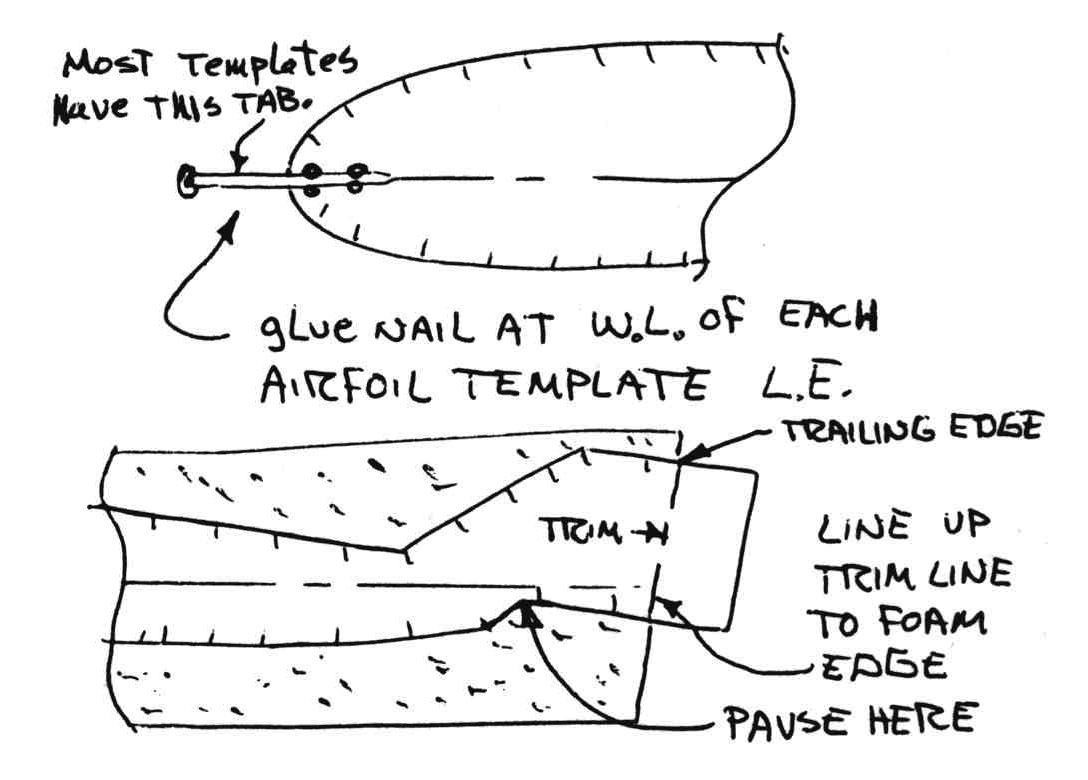 Most Templates
Have THIS TAB.
glue NAIL AT W.L. OF EACH
AIRFOIL TEMPLATE L.E.
TRAILING EDGE
TRIM
LINE UP
TRIM LINE
TO FOAM
EDGE
PAUSE HERE